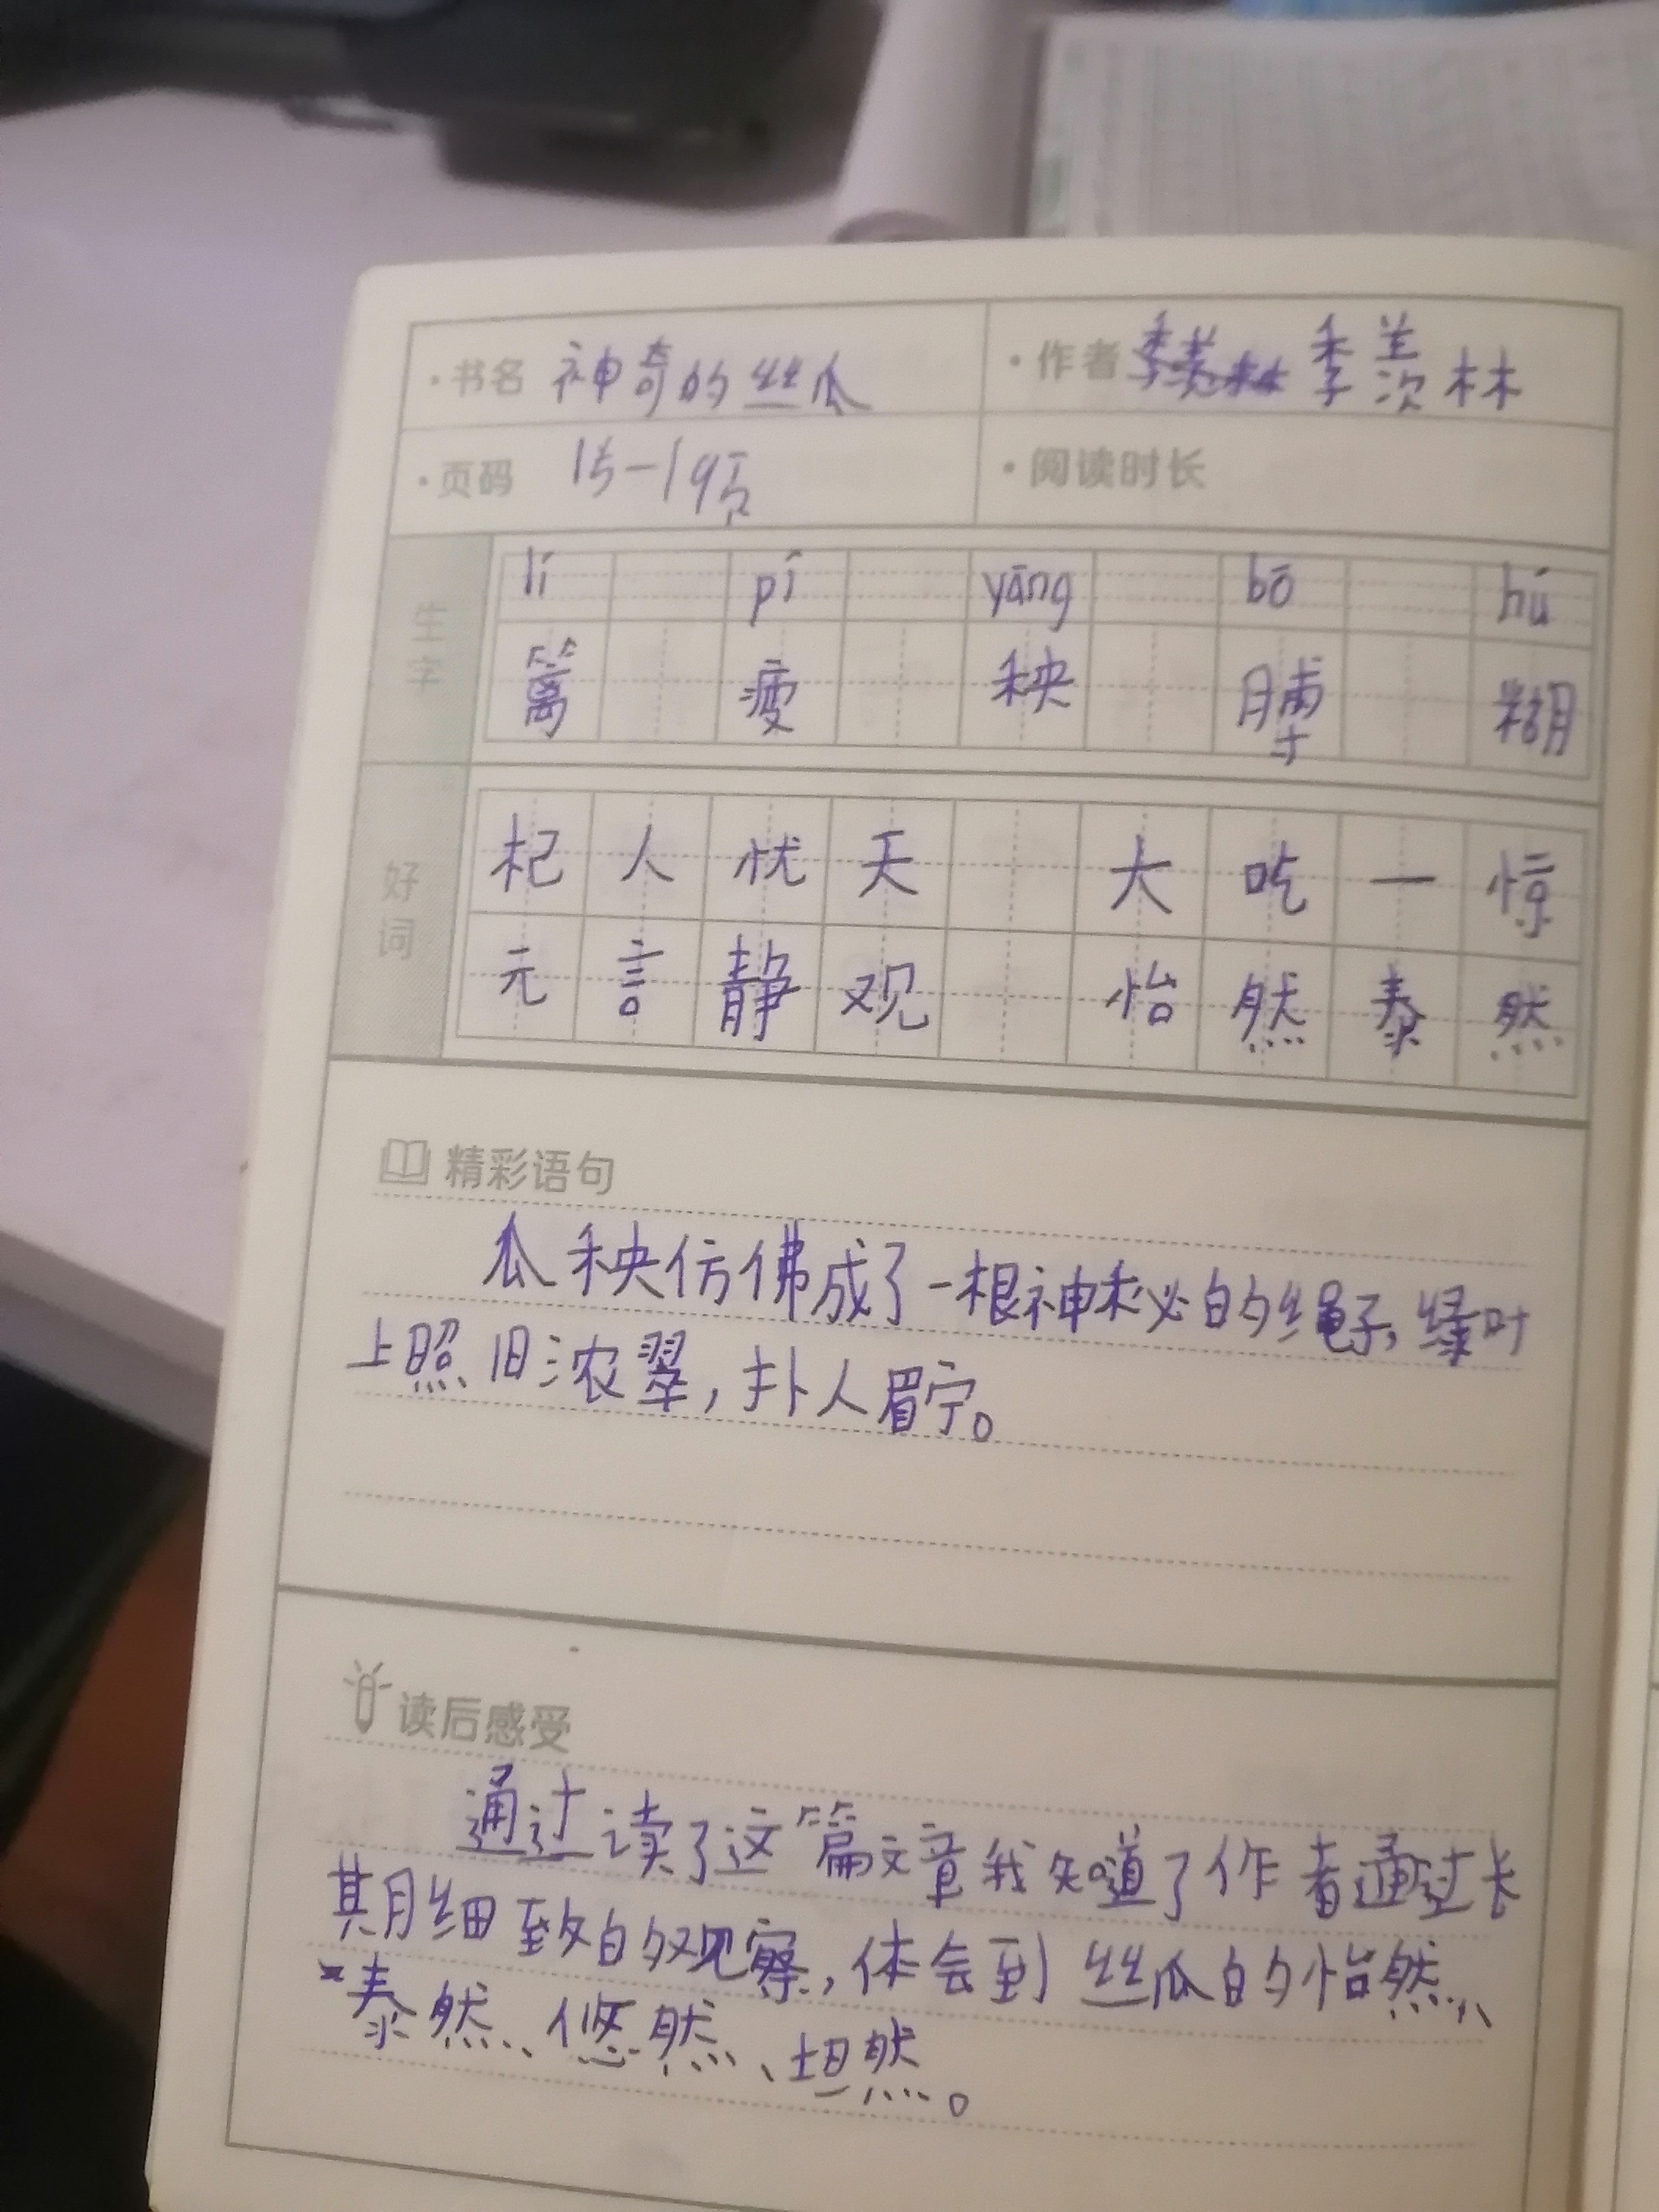 ·书名 神奇的丝瓜 ·作者 季羡林
·页码 15-19页 ·阅读时长
生字
lí pí yāng bō hú
篱 疲 秧 膊 糊
好词
杞人忧天 大吃一惊
元言静观 怡然泰然
精彩语句
瓜秧仿佛成了一根神秘的绳子,绿叶
上照旧浓翠,扑人眉宁。
读后感受
通过读了这篇文章我知道了作者通过长
期细致的观察,体会到丝瓜的怡然、
泰然、悠然、坦然。